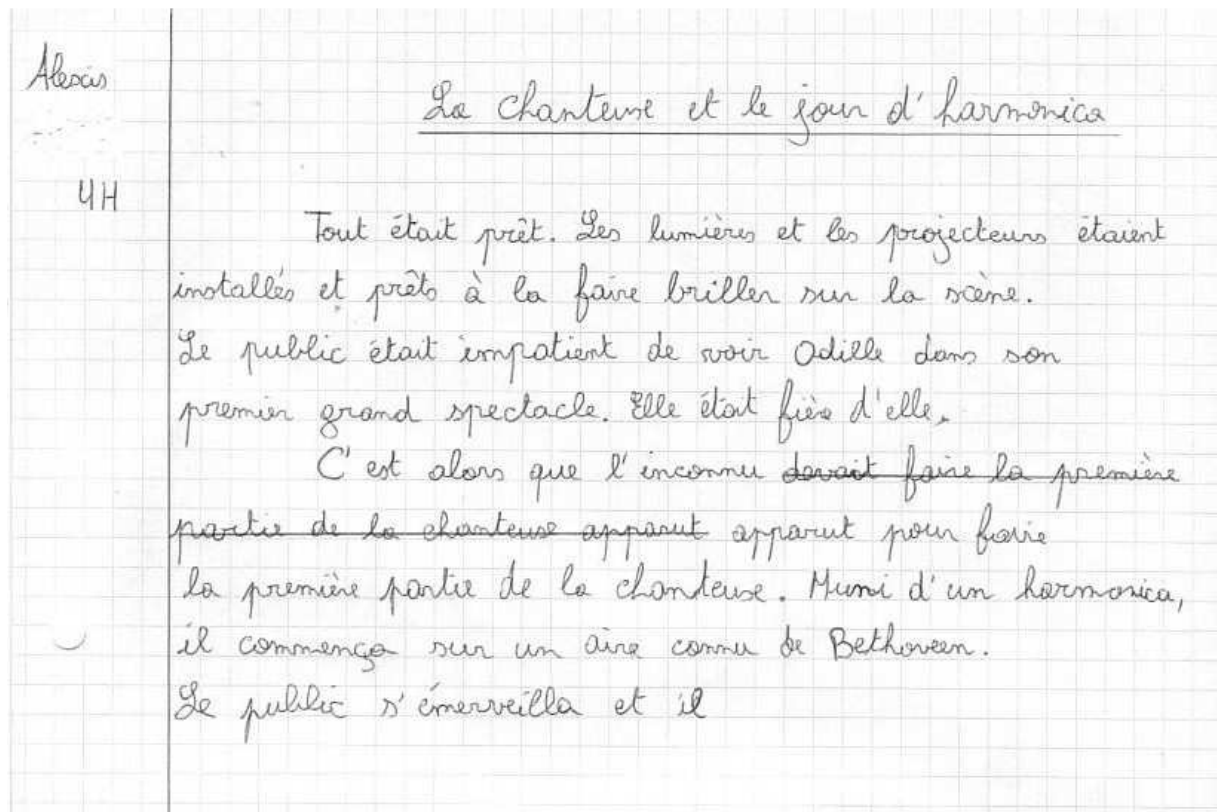 Alexis
La chanteuse et le jour d'harmonica
4H
Tout était prêt. Les lumières et les projecteurs étaient
installés et prêts à la faire briller sur la scène.
Le public était impatient de voir Odille dans son
premier grand spectacle. Elle était fière d'elle.
C'est alors que l'inconnu devait faire la première
partie de la chanteuse apparut apparut pour faire
la première partie de la chanteuse. Muni d'un harmonica,
il commença sur un aire connu de Bethoveen.
Le public s'émerveilla et il